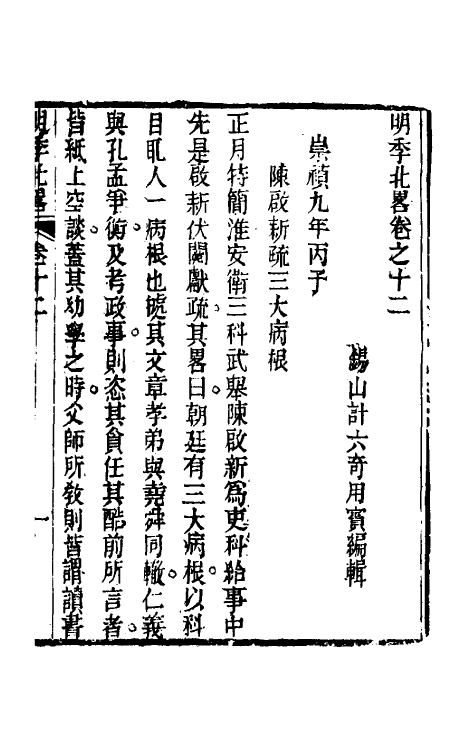 明季北畧卷之十二
錫山計六奇用賓編輯
崇禎九年丙子
陳啟新疏三大病根
正月特簡淮安衛三科武舉陳啟新為吏科給事中
先是啟新伏闕獻疏其畧曰朝廷有三大病根以科
目取人一病根也據其文章孝弟與堯舜同轍仁義
與孔孟爭衡及考政事則恣其貪任其酷前所言者
皆紙上空談蓋其幼學之時父師所教則皆謂讀書
明季北畧 卷十二 一